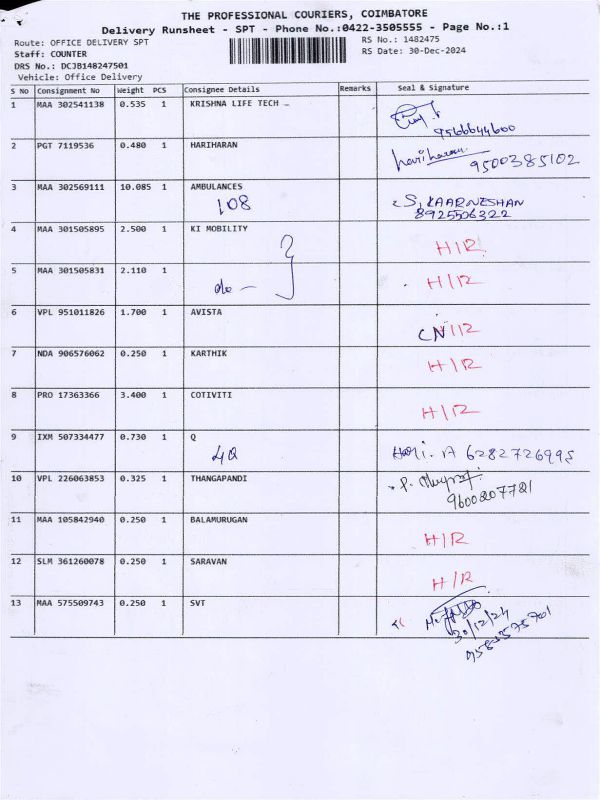 THE PROFESSIONAL COURIERS, COIMBATORE
Delivery Runsheet - SPT - Phone No.:0422-3505555 - Page No.:1
Route: OFFICE DELIVERY SPT
Staff: COUNTER
DRS No.: DCJB148247501
Vehicle: Office Delivery
RS No.: 1482475
RS Date: 30-Dec-2024
S No Consignment No Weight PCS Consignee Details Remarks Seal & Signature
1 MAA 302541138 0.535 1 KRISHNA LIFE TECH
9566644600
2 PGT 7119536 0.480 1 HARIHARAN hariharan
9500385102
3 MAA 302569111 10.085 1 AMBULANCES
108
S. KAARNESHAN
8925506322
4 MAA 301505895 2.500 1 KI MOBILITY H/R
5 MAA 301505831 2.110 1 do H/R
6 VPL 951011826 1.700 1 AVISTA
7 NDA 906576062 0.250 1 KARTHIK H/R
8 PRO 17363366 3.400 1 COTIVITI H/R
9 IXM 507334477 0.730 1 Q
4Q Hari. A 6282726995
10 VPL 226063853 0.325 1 THANGAPANDI
9600207721
11 MAA 105842940 0.250 1 BALAMURUGAN H/R
12 SLM 361260078 0.250 1 SARAVAN H/R
13 MAA 575509743 0.250 1 SVT
30/12/24